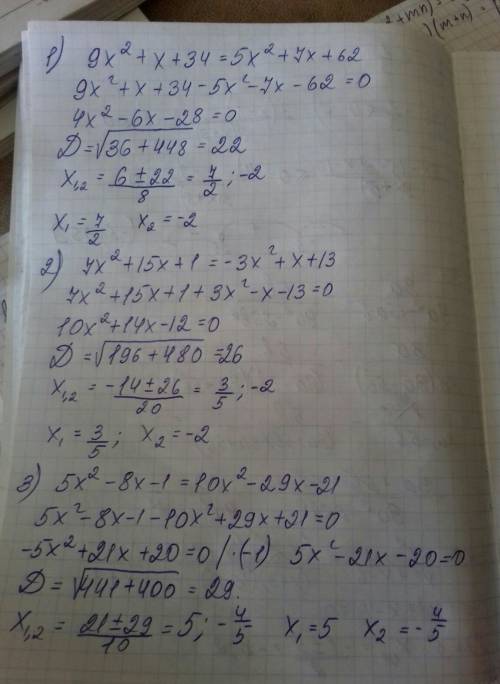 ²+mn)=
)(m+n)
1) 9x²+x+34=5x²+7x+62
9x²+x+34-5x²-7x-62=0
4x²-6x-28=0
D=√36+448=22
x₁,₂=(6±22)/8=7/2;-2
x₁=7/2 x₂=-2
2) 7x²+15x+1=-3x²+x+13
7x²+15x+1+3x²-x-13=0
10x²+14x-12=0
D=√196+480=26
x₁,₂=(-14±26)/20=3/5;-2
x₁=3/5; x₂=-2
3) 5x²-8x-1=10x²-29x-21
5x²-8x-1-10x²+29x+21=0
-5x²+21x+20=0/·(-1) 5x²-21x-20=0
D=√441+400=29.
x₁,₂=(21±29)/10=5;-4/5 x₁=5 x₂=-4/5